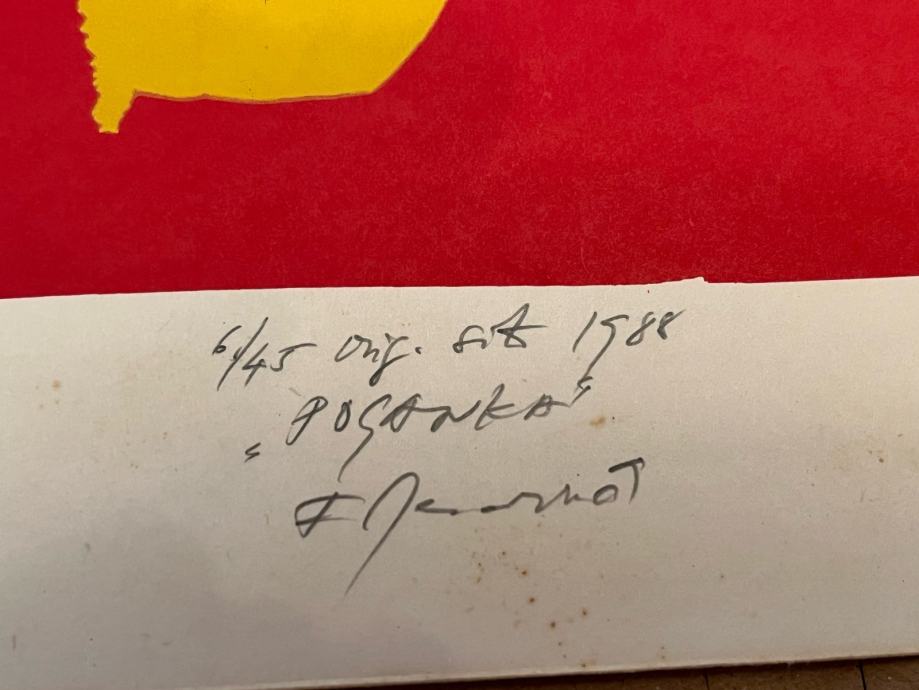 6/45 orig. sit 1988
„POGANKA"
F